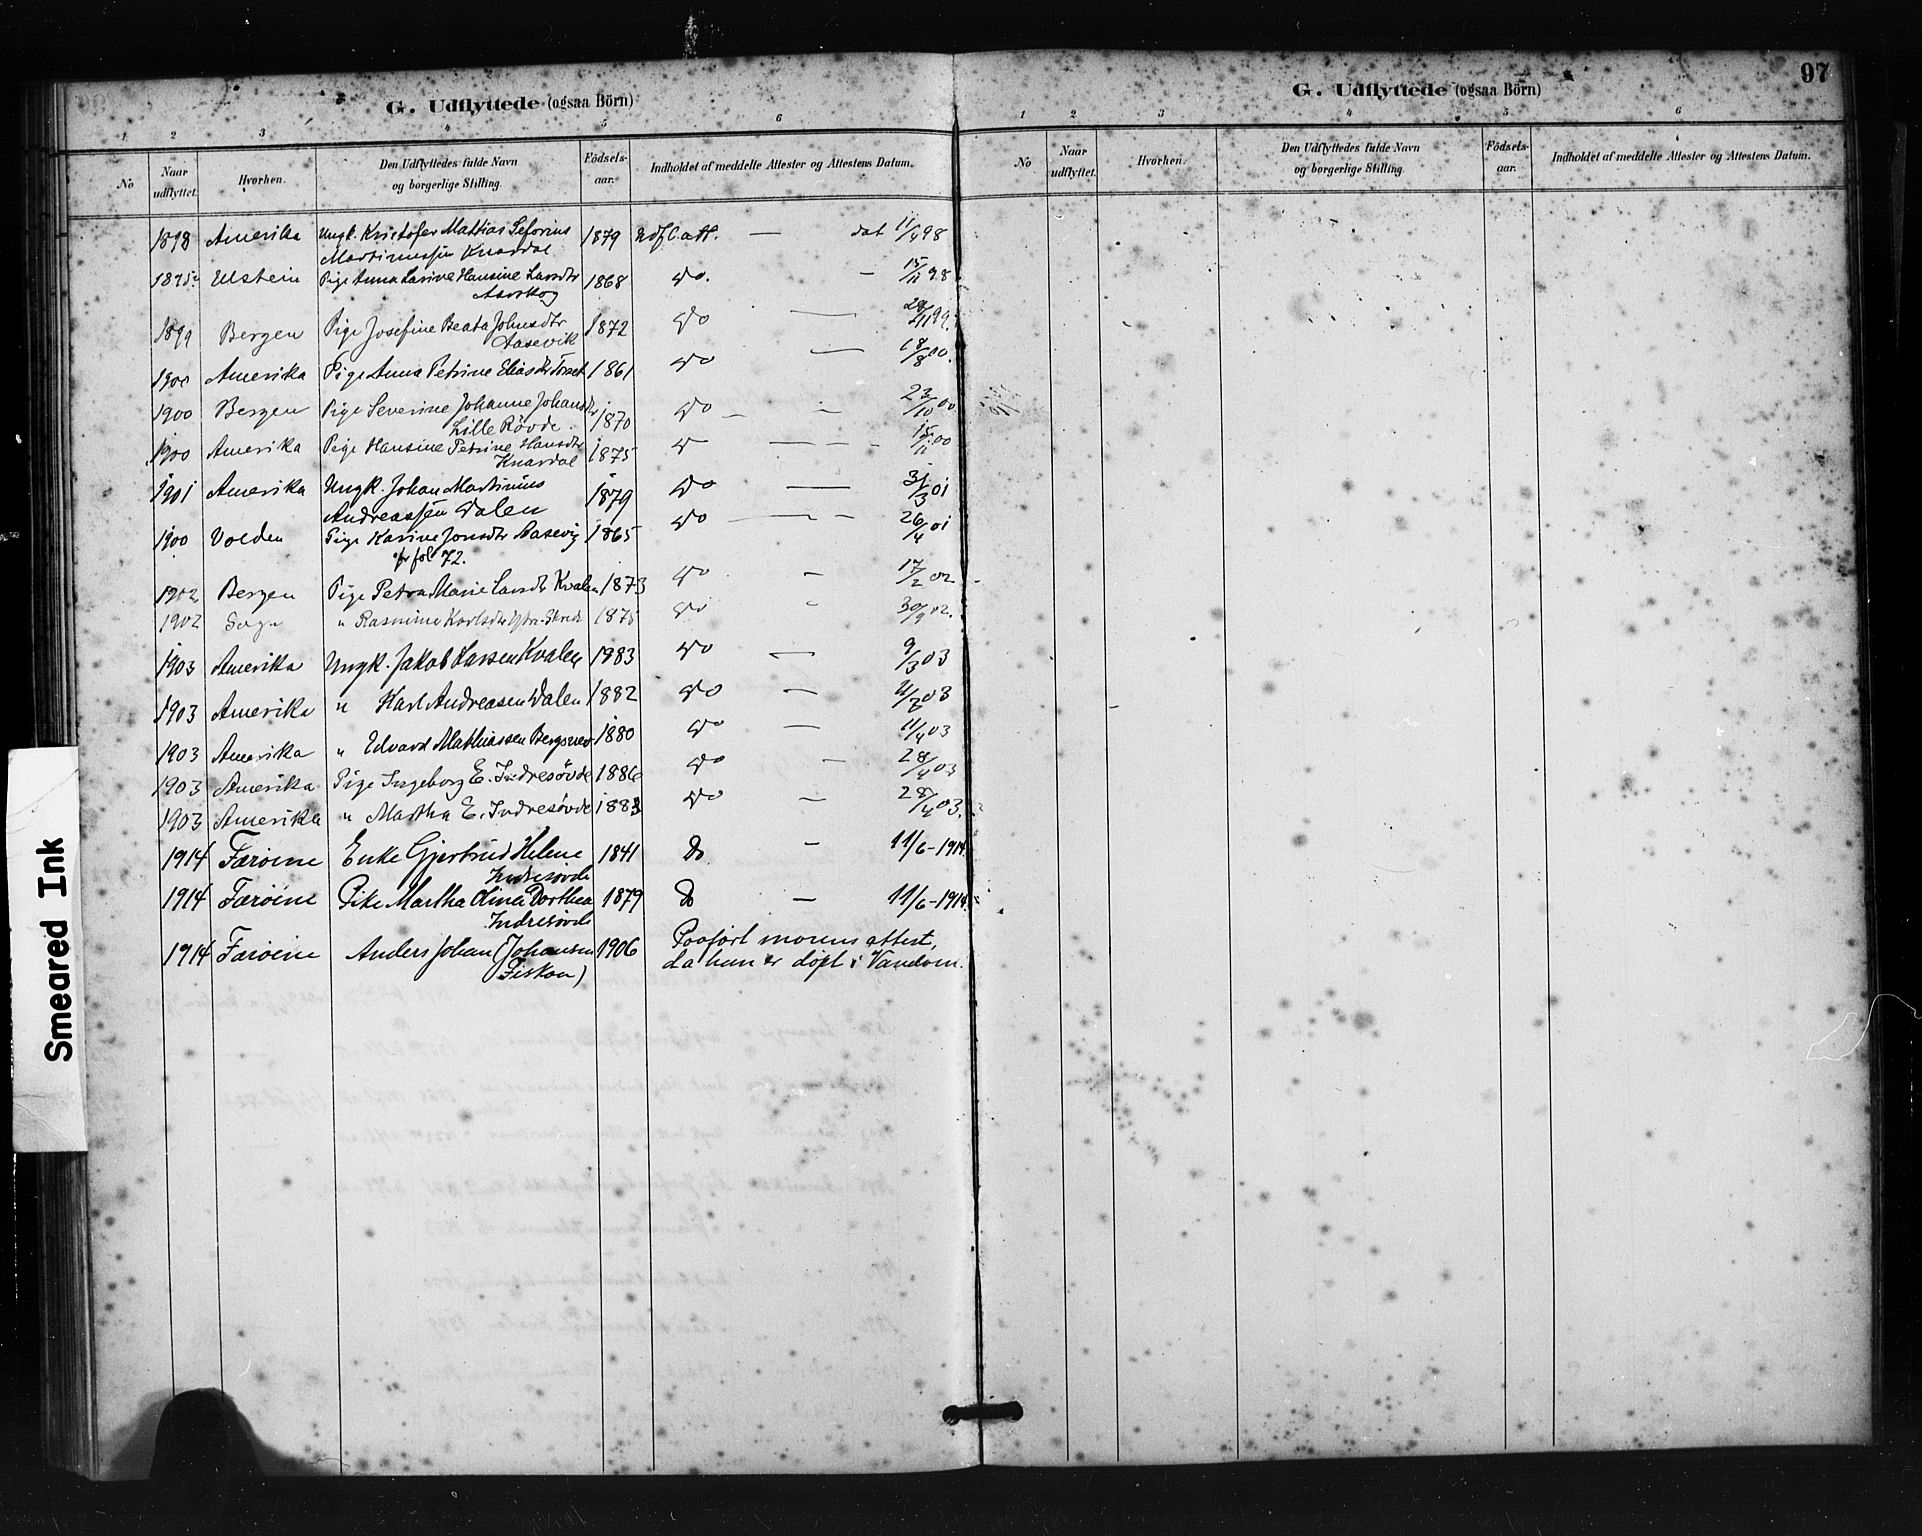 G. Udflyttede (ogsaa Börn)
1 2 3 4 5 6
No Naar udflyttet. Hvorhen. Den Udflyttedes fulde Navn og borgerlige Stilling. Födsels-aar. Indholdet af meddelte Attester og Attestens Datum.
1898 Amerika Ungk. Kristofer Mattias Seforius 1879 Udfl. att. — dat 11/4 98
Martinussen Knardal
Ulstein Pige Anna Lasine Hansine Larsdtr 1868 Do. — 15/11 98
Aarskog
1899 Bergen Pige Josefine Beata Johnsdtr 1872 Do — 99.
Aasevik
1900 Amerika Pige Anna Petrine Eliasdtr 1861 Do — 18/8 00.
1900 Bergen Pige Severine Johanne Johansdtr 1870 Do — — 23/10 00
Lille Rövde.
1900 Amerika Pige Hansine Petrine Hansdtr 1875 D — — — 15/11 00
Knardal
1901 Amerika Ungk. Johan Martinius 1879 Do — 3/3 01
Andreassen Dalen
1900 Volden Pige Karine Jonsdtr Aasevig 1865 Do — — 26/4 01
fol 72.
1902 Bergen Pige Petra Marie Larsdtr Kvalen 1873 Do — 17/2 02
1902 " Rasmine Karlsdtr 1875 Do " 30/9 02.
1903 Amerika Ungk. Jakob Larsen Kvalen 1983 Do — 9/3 03
1903 Amerika " Karl Andreasen Dalen 1882 Do — 03
1903 Amerika " Edvard Mathiassen 1880 Do — 11/4 03
1903 Amerika Pige Ingeborg E. Indresövde 1886 Do — 28/4 03
1903 Amerika " Martha E. Indresövde 1883 Do — 28/4 03.
1914 Færöine Enke Gjertrud Helene 1841 Do — 11/6-1914.
Indresövde
1914 Færöine Pike Martha Olinea Dorthea 1879 Do — 11/6-1914.
Indresövde
1914 Færöine Anders Johan (Johansen 1906 Paafört morens attest,
Fiskaa) da han er döpt i Vandom.
G. Udflyttede (ogsaa Börn) 97
1 2 3 4 5 6
No Naar udflyttet. Hvorhen. Den Udflyttedes fulde Navn og borgerlige Stilling. Födsels-aar. Indholdet af meddelte Attester og Attestens Datum.
Smeared Ink